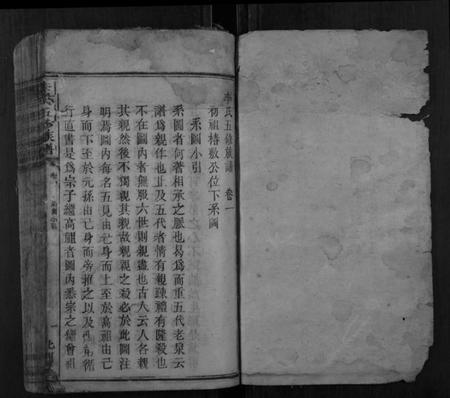 李氏五修族譜 卷一
初祖椿敷公位下系圖
系圖小引
系圖者何著相承之脈也曷爲而重五代老泉云
譜爲親作也止及五代者情有親疎禮有隆殺也
不在圖內者無服六世則親盡也古人云人各親
其親然後不獨親其親故親親之殺必於此圖注
明焉圖內每名五見由己身而上至於高祖由己
身而下至於元孫由己身而旁推之以及
行直書是爲宗子繼高祖者圖內悉宗之